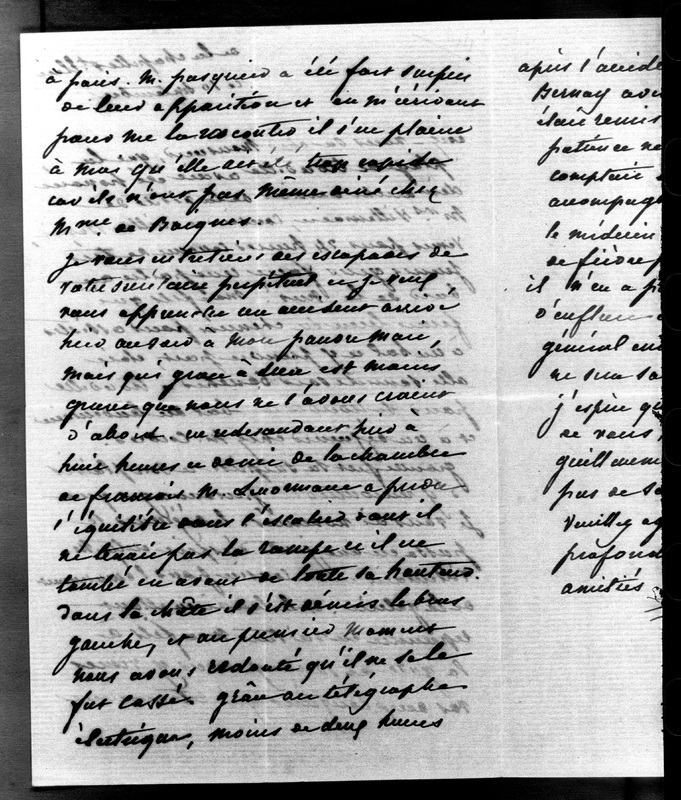 à paris. M. pasquier a été fort surpris
de leur apparition et en m'écrivant
pour me la raconter il s'en plaint
à moi qu'elle ait été trop rapide
car ils n'ont pas même dîné chez
Mme de Boignes.
Je vous entretiens des escapades de
votre perpétuel et je veux
vous apprendre un accident arrivé
hier au soir à mon pauvre mari,
mais qui grâce à Dieu est moins
grave que nous ne l'avons craint
d'abord. en descendant hier à
huit heures et demie de la chambre
de françois M. Lenormant a perdu
l'équilibre dans l'escalier dont il
ne tenait pas la rampe et il est
tombé en avant de toute sa hauteur.
Dans la chûte il s'est démis le bras
gauche, et au premier moment
nous avons redouté qu'il ne se le
fut cassé. grâce au télégraphe
électrique, moins de deux heures
après l'accide
Bernay av
était remis
patience ne
comptait
accompag
le médecin
de fièvre
il n'en a p
d'enflure
général en
ne sera
j'espère qu
de vous,
guillaume
pas de
Veuillez ag
profond
amitiés